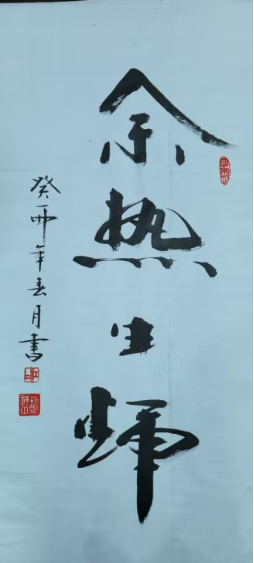 余热生辉
癸卯年春月書